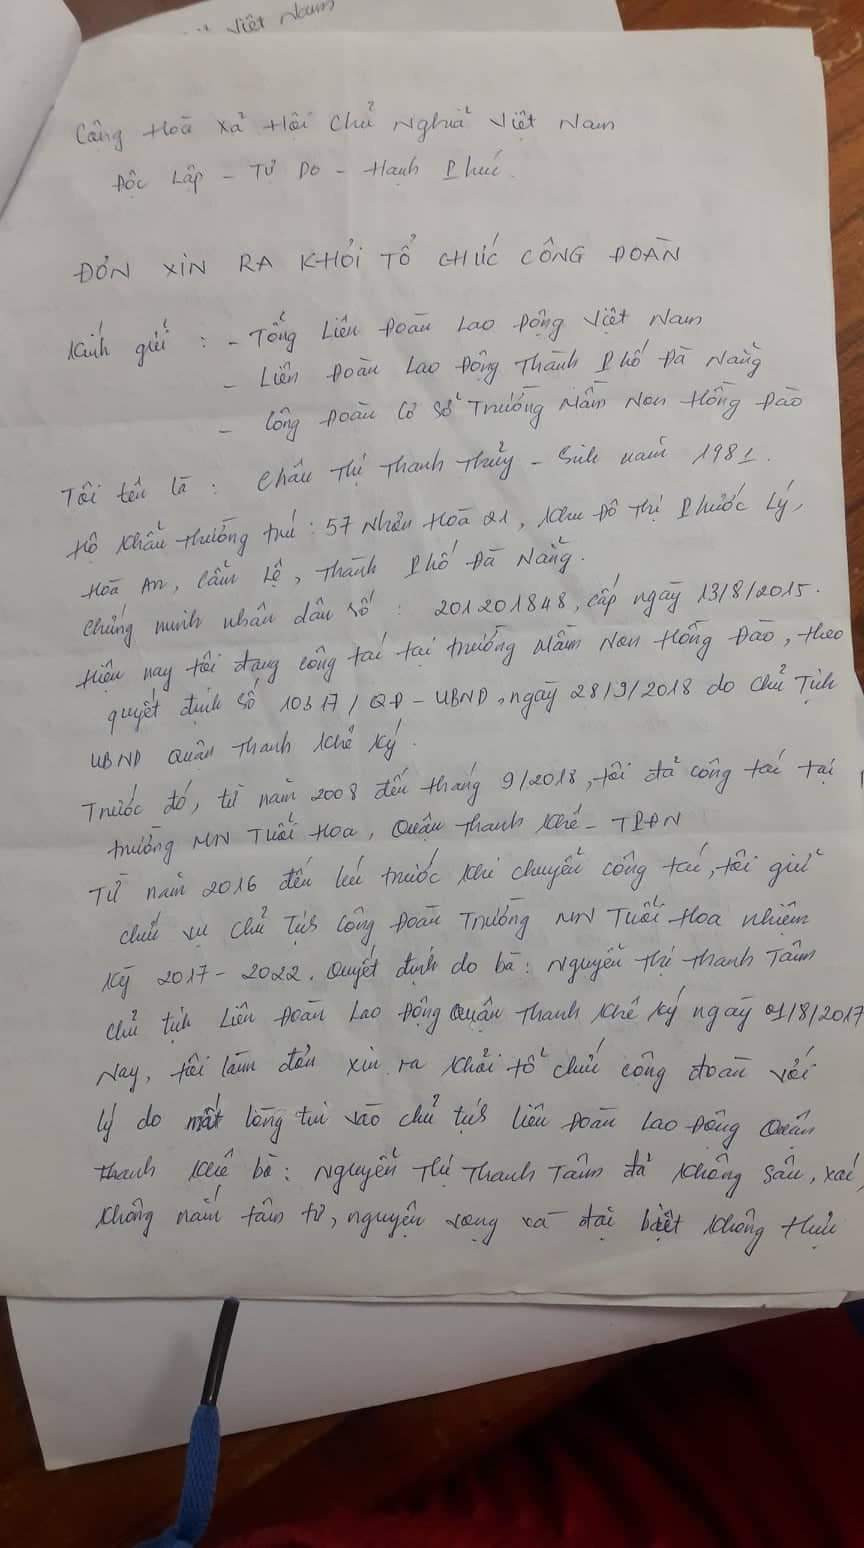 Việt Nam
Cộng Hoà Xã Hội Chủ Nghĩa Việt Nam
Độc Lập - Tự Do - Hạnh Phúc.
ĐƠN XIN RA KHỎI TỔ CHỨC CÔNG ĐOÀN
Kính gửi : - Tổng Liên Đoàn Lao Động Việt Nam
- Liên Đoàn Lao Động Thành Phố Đà Nẵng
- Công Đoàn Cơ Sở Trường Mầm Non Hồng Đào
Tôi tên là : Châu Thị Thanh Thủy - Sinh năm 1981.
Hộ khẩu thường trú : 57 Nhơn Hoà 21, Khu Đô Thị Phước Lý,
Hoà An, Cẩm Lệ, Thành Phố Đà Nẵng.
Chứng minh nhân dân số : 201201848, cấp ngày 13/8/2015.
Hiện nay tôi đang công tác tại trường Mầm Non Hồng Đào, theo
quyết định số 10317/QĐ-UBND, ngày 28/9/2018 do Chủ Tịch
UBND Quận Thanh Khê Ký.
Trước đó, từ năm 2008 đến tháng 9/2018, tôi đã công tác tại
trường MN Tuổi Hoa, Quận Thanh Khê - TPĐN
Từ năm 2016 đến khi trước khi chuyển công tác, tôi giữ
chức vụ Chủ Tịch Công Đoàn Trường MN Tuổi Hoa nhiệm
kỳ 2017 - 2022. Quyết định do bà : Nguyễn Thị Thanh Tâm
chủ tịch Liên Đoàn Lao Động Quận Thanh Khê ký ngày 01/8/2017
Nay, tôi làm đơn xin ra khỏi tổ chức công đoàn với
lý do mất lòng tin vào chủ tịch liên Đoàn Lao Động Quận
Thanh Khê bà : Nguyễn Thị Thanh Tâm đã không sâu, xác,
không nắm tâm tư, nguyện vọng và đặc biệt không thực